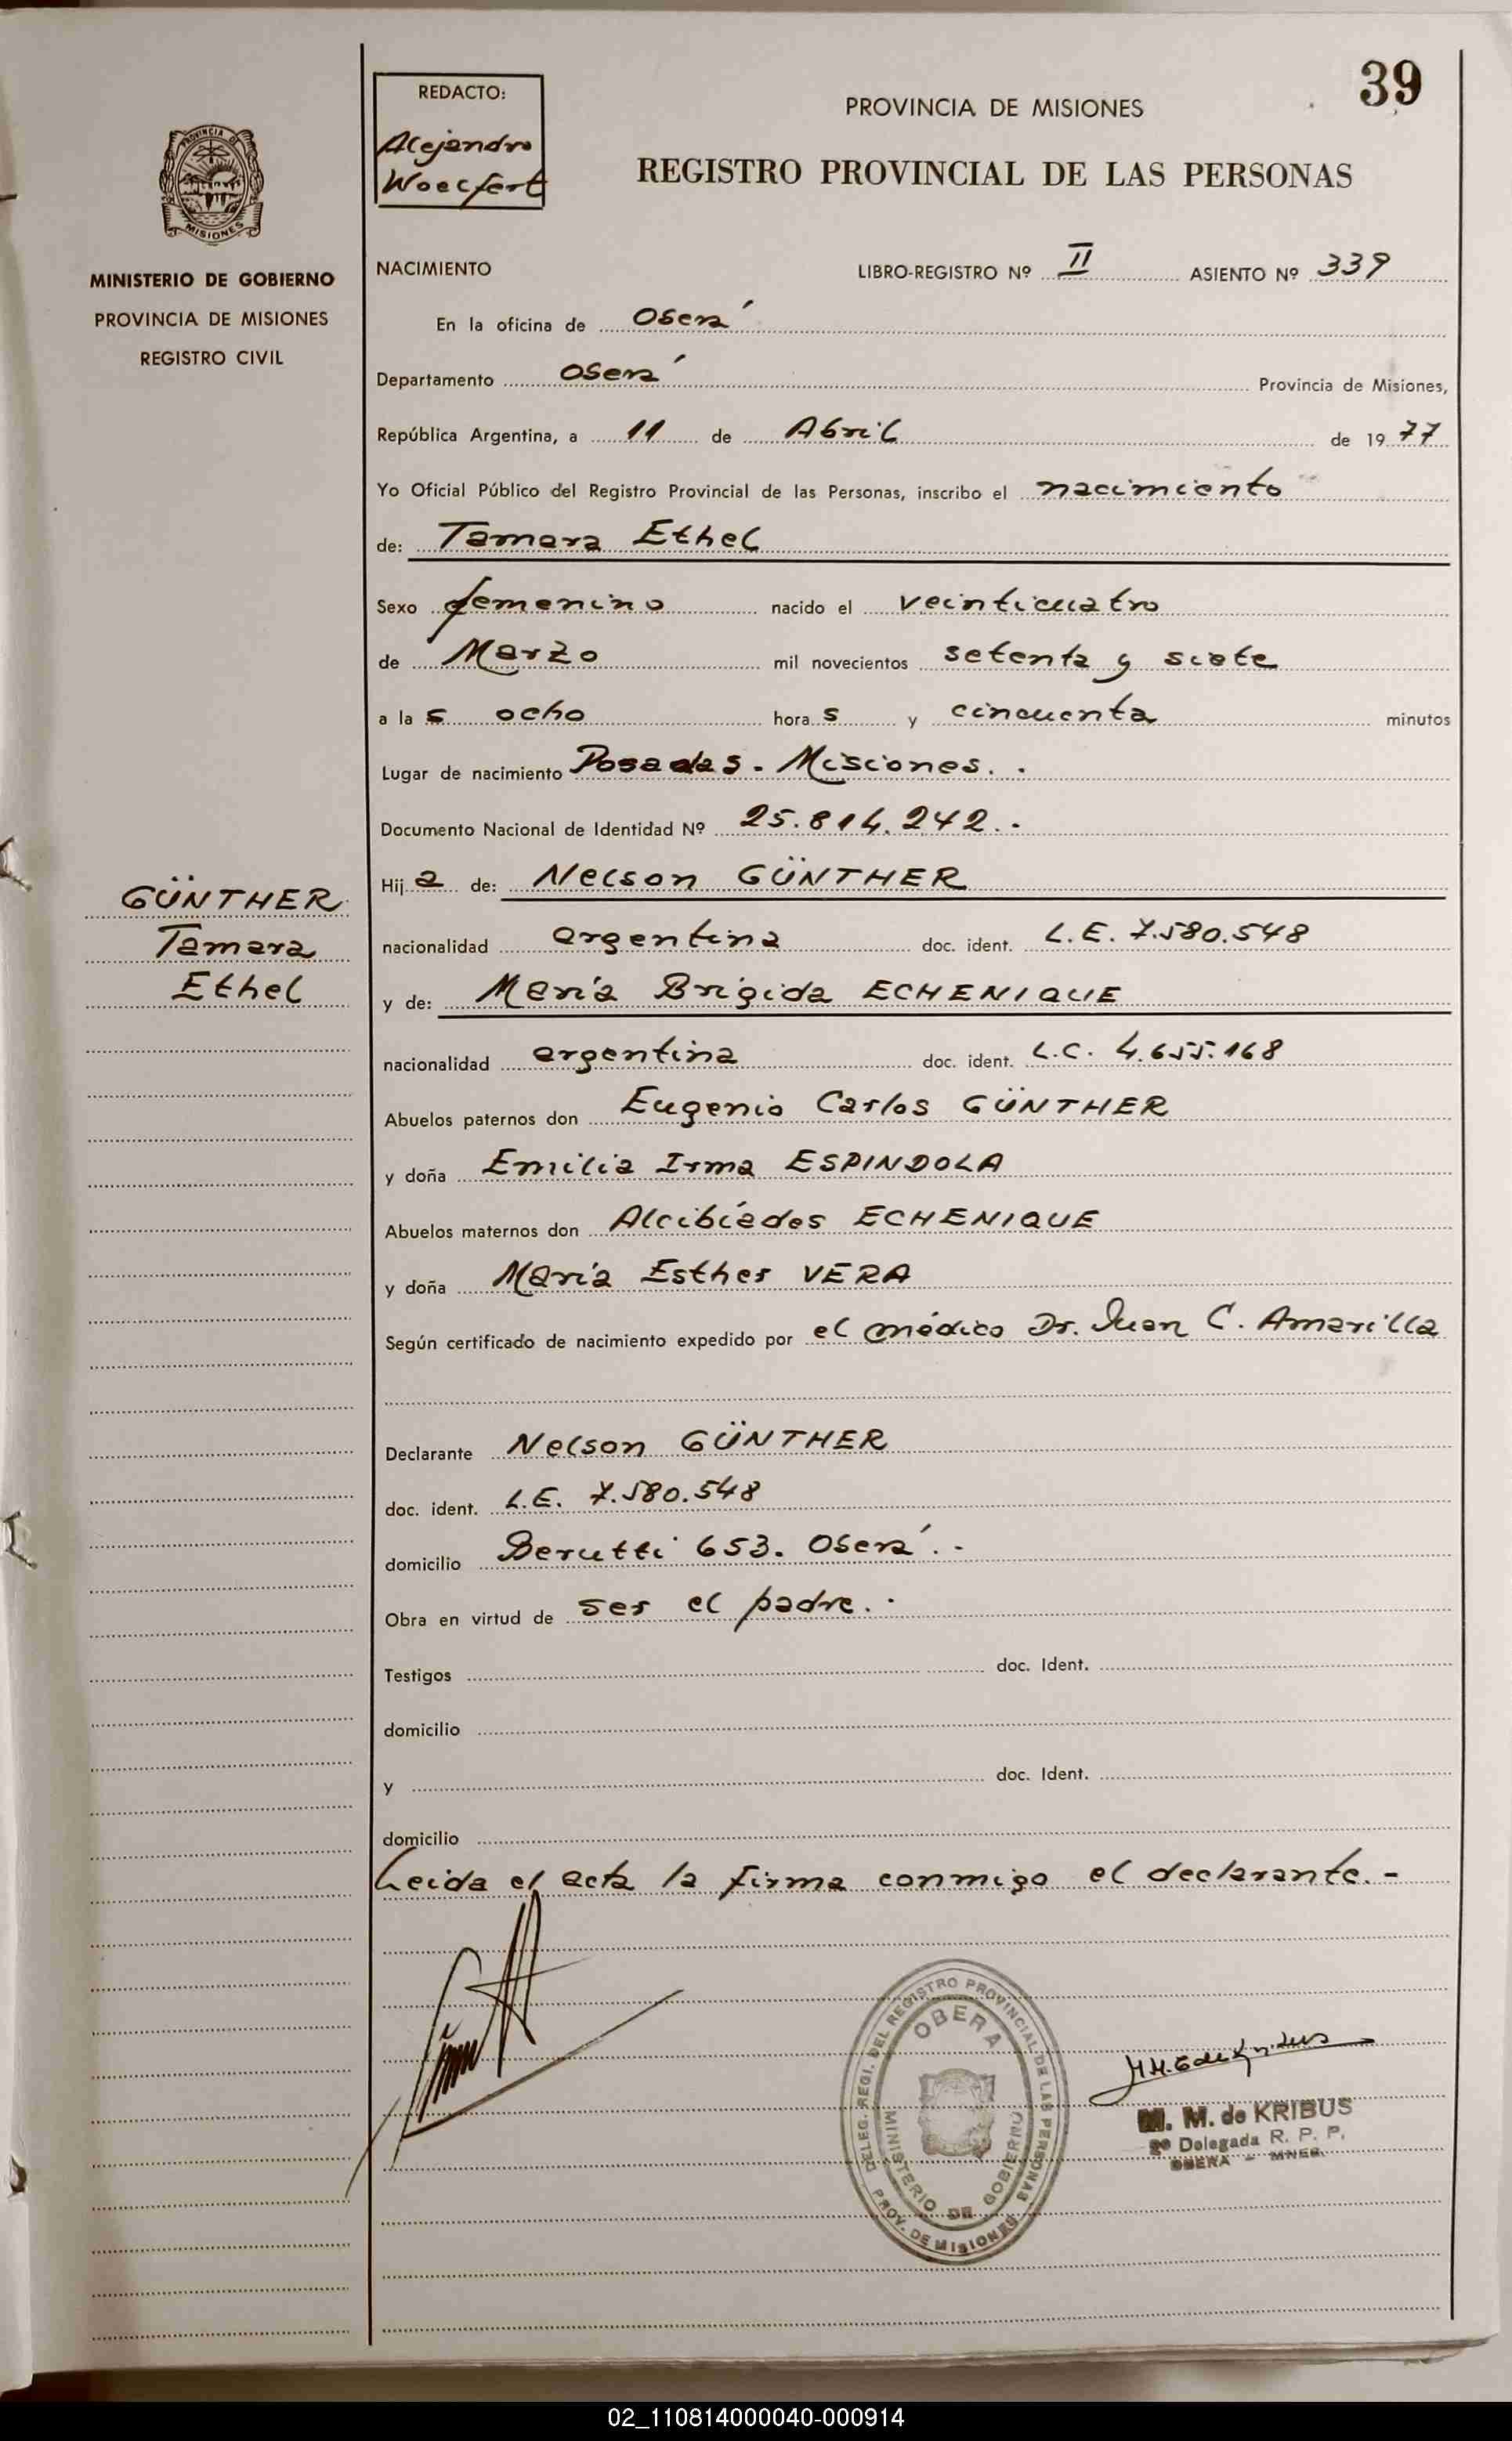 39
REDACTO:
Alejandro
Woecfert
PROVINCIA DE MISIONES
REGISTRO PROVINCIAL DE LAS PERSONAS
PROVINCIA DE
MISIONES
MINISTERIO DE GOBIERNO
PROVINCIA DE MISIONES
REGISTRO CIVIL
NACIMIENTO LIBRO-REGISTRO Nº II ASIENTO Nº 339
En la oficina de Oberá
Departamento Oberá Provincia de Misiones,
República Argentina, a 11 de Abril de 1977
Yo Oficial Público del Registro Provincial de las Personas, inscribo el nacimiento
de: Tamara Ethel
Sexo femenino nacido el veinticuatro
de Marzo mil novecientos setenta y siete
a las ocho horas y cincuenta minutos
Lugar de nacimiento Posadas - Misiones. -
Documento Nacional de Identidad Nº 25.814.242. -
Hija de: Nelson GÜNTHER
nacionalidad argentina doc. ident. L.E. 7.580.548
y de: María Brígida ECHENIQUE
nacionalidad argentina doc. ident. L.C. 4.655.168
Abuelos paternos don Eugenio Carlos GÜNTHER
y doña Emilia Irma ESPINDOLA
Abuelos maternos don Alcibíades ECHENIQUE
y doña María Esther VERA
Según certificado de nacimiento expedido por el médico Dr. Juan C. Amarilla
Declarante Nelson GÜNTHER
doc. ident. L.E. 7.580.548
domicilio Berutti 653. Oberá. -
Obra en virtud de ser el padre. -
Testigos doc. Ident.
domicilio
y doc. Ident.
domicilio
Leida el acta la firma conmigo el declarante. -
GÜNTHER
Tamara
Ethel
DELEG. REGI. DEL REGISTRO PROVINCIAL DE LAS PERSONAS
OBERA
MINISTERIO DE GOBIERNO
PROV. DE MISIONES
M. M. de KRIBUS
Delegada R. P. P.
OBERA - MNES.
02_110814000040-000914